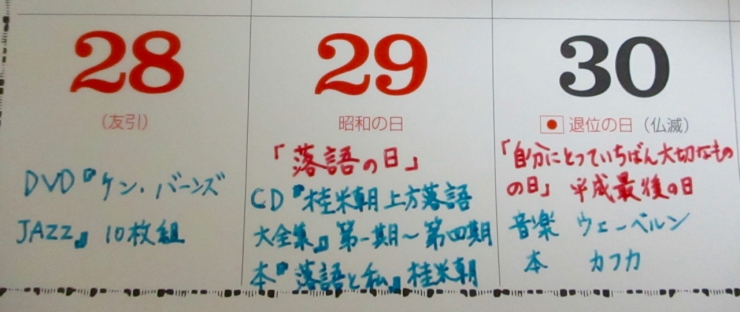 28
(友引)
DVD『ケン・バーンズ
JAZZ』10枚組
29
昭和の日
「落語の日」
CD『桂米朝上方落語
大全集』第一期～第四期
本『落語と私』桂米朝
30
退位の日(仏滅)
「自分にとっていちばん大切なもの
の日」平成最後の日
音楽 ウェーベルン
本 カフカ